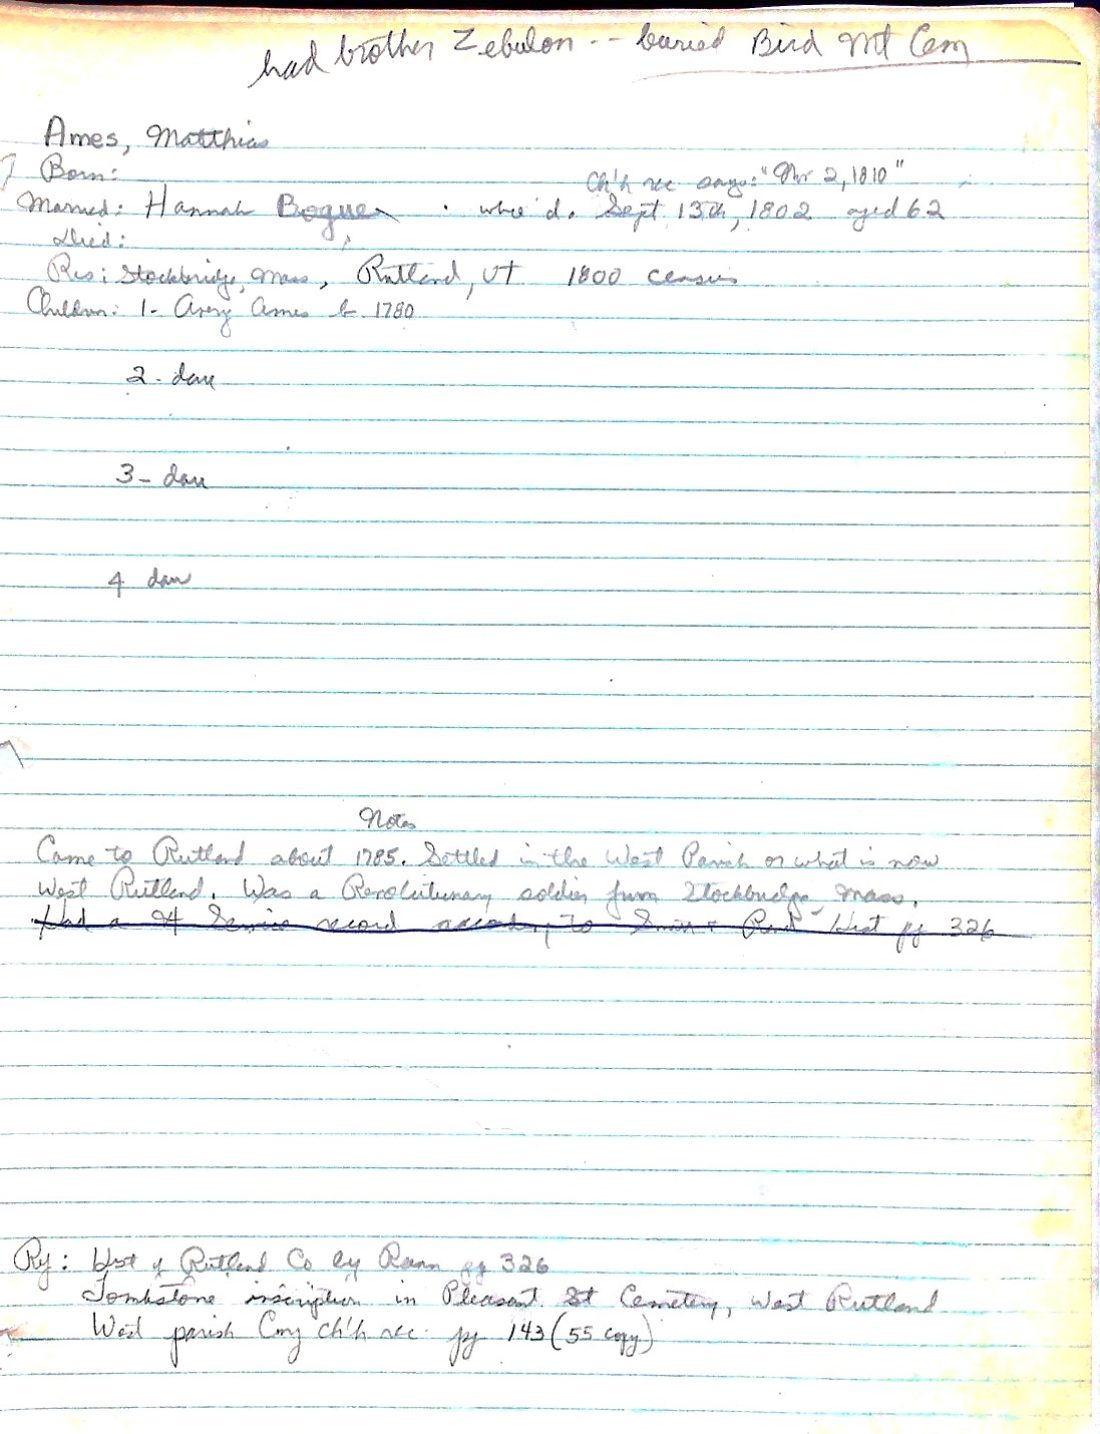 had brother Zebulon -- buried Bird Mt Cem
Ames, Matthias
Born:
Ch'h rec says: "Mr 2, 1810"
Married: Hannah Bogue who d. Sept 13th, 1802 aged 62
Died:
Res: Stockbridge, Mass, Rutland, VT 1800 census
Children: 1- Avery Ames b 1780
2- dau
3- dau
4 dau
Notes
Came to Rutland about 1785. Settled in the West Parish or what is now
West Rutland. Was a Revolutionary soldier from Stockbridge, Mass.
Had a Service record to Rand Hist pg 326
Ref: Hist of Rutland Co by Rann pg 326
Tombstone inscription in Pleasant St Cemetery, West Rutland
West parish Cong ch'h rec. pg 143 (55 copy)